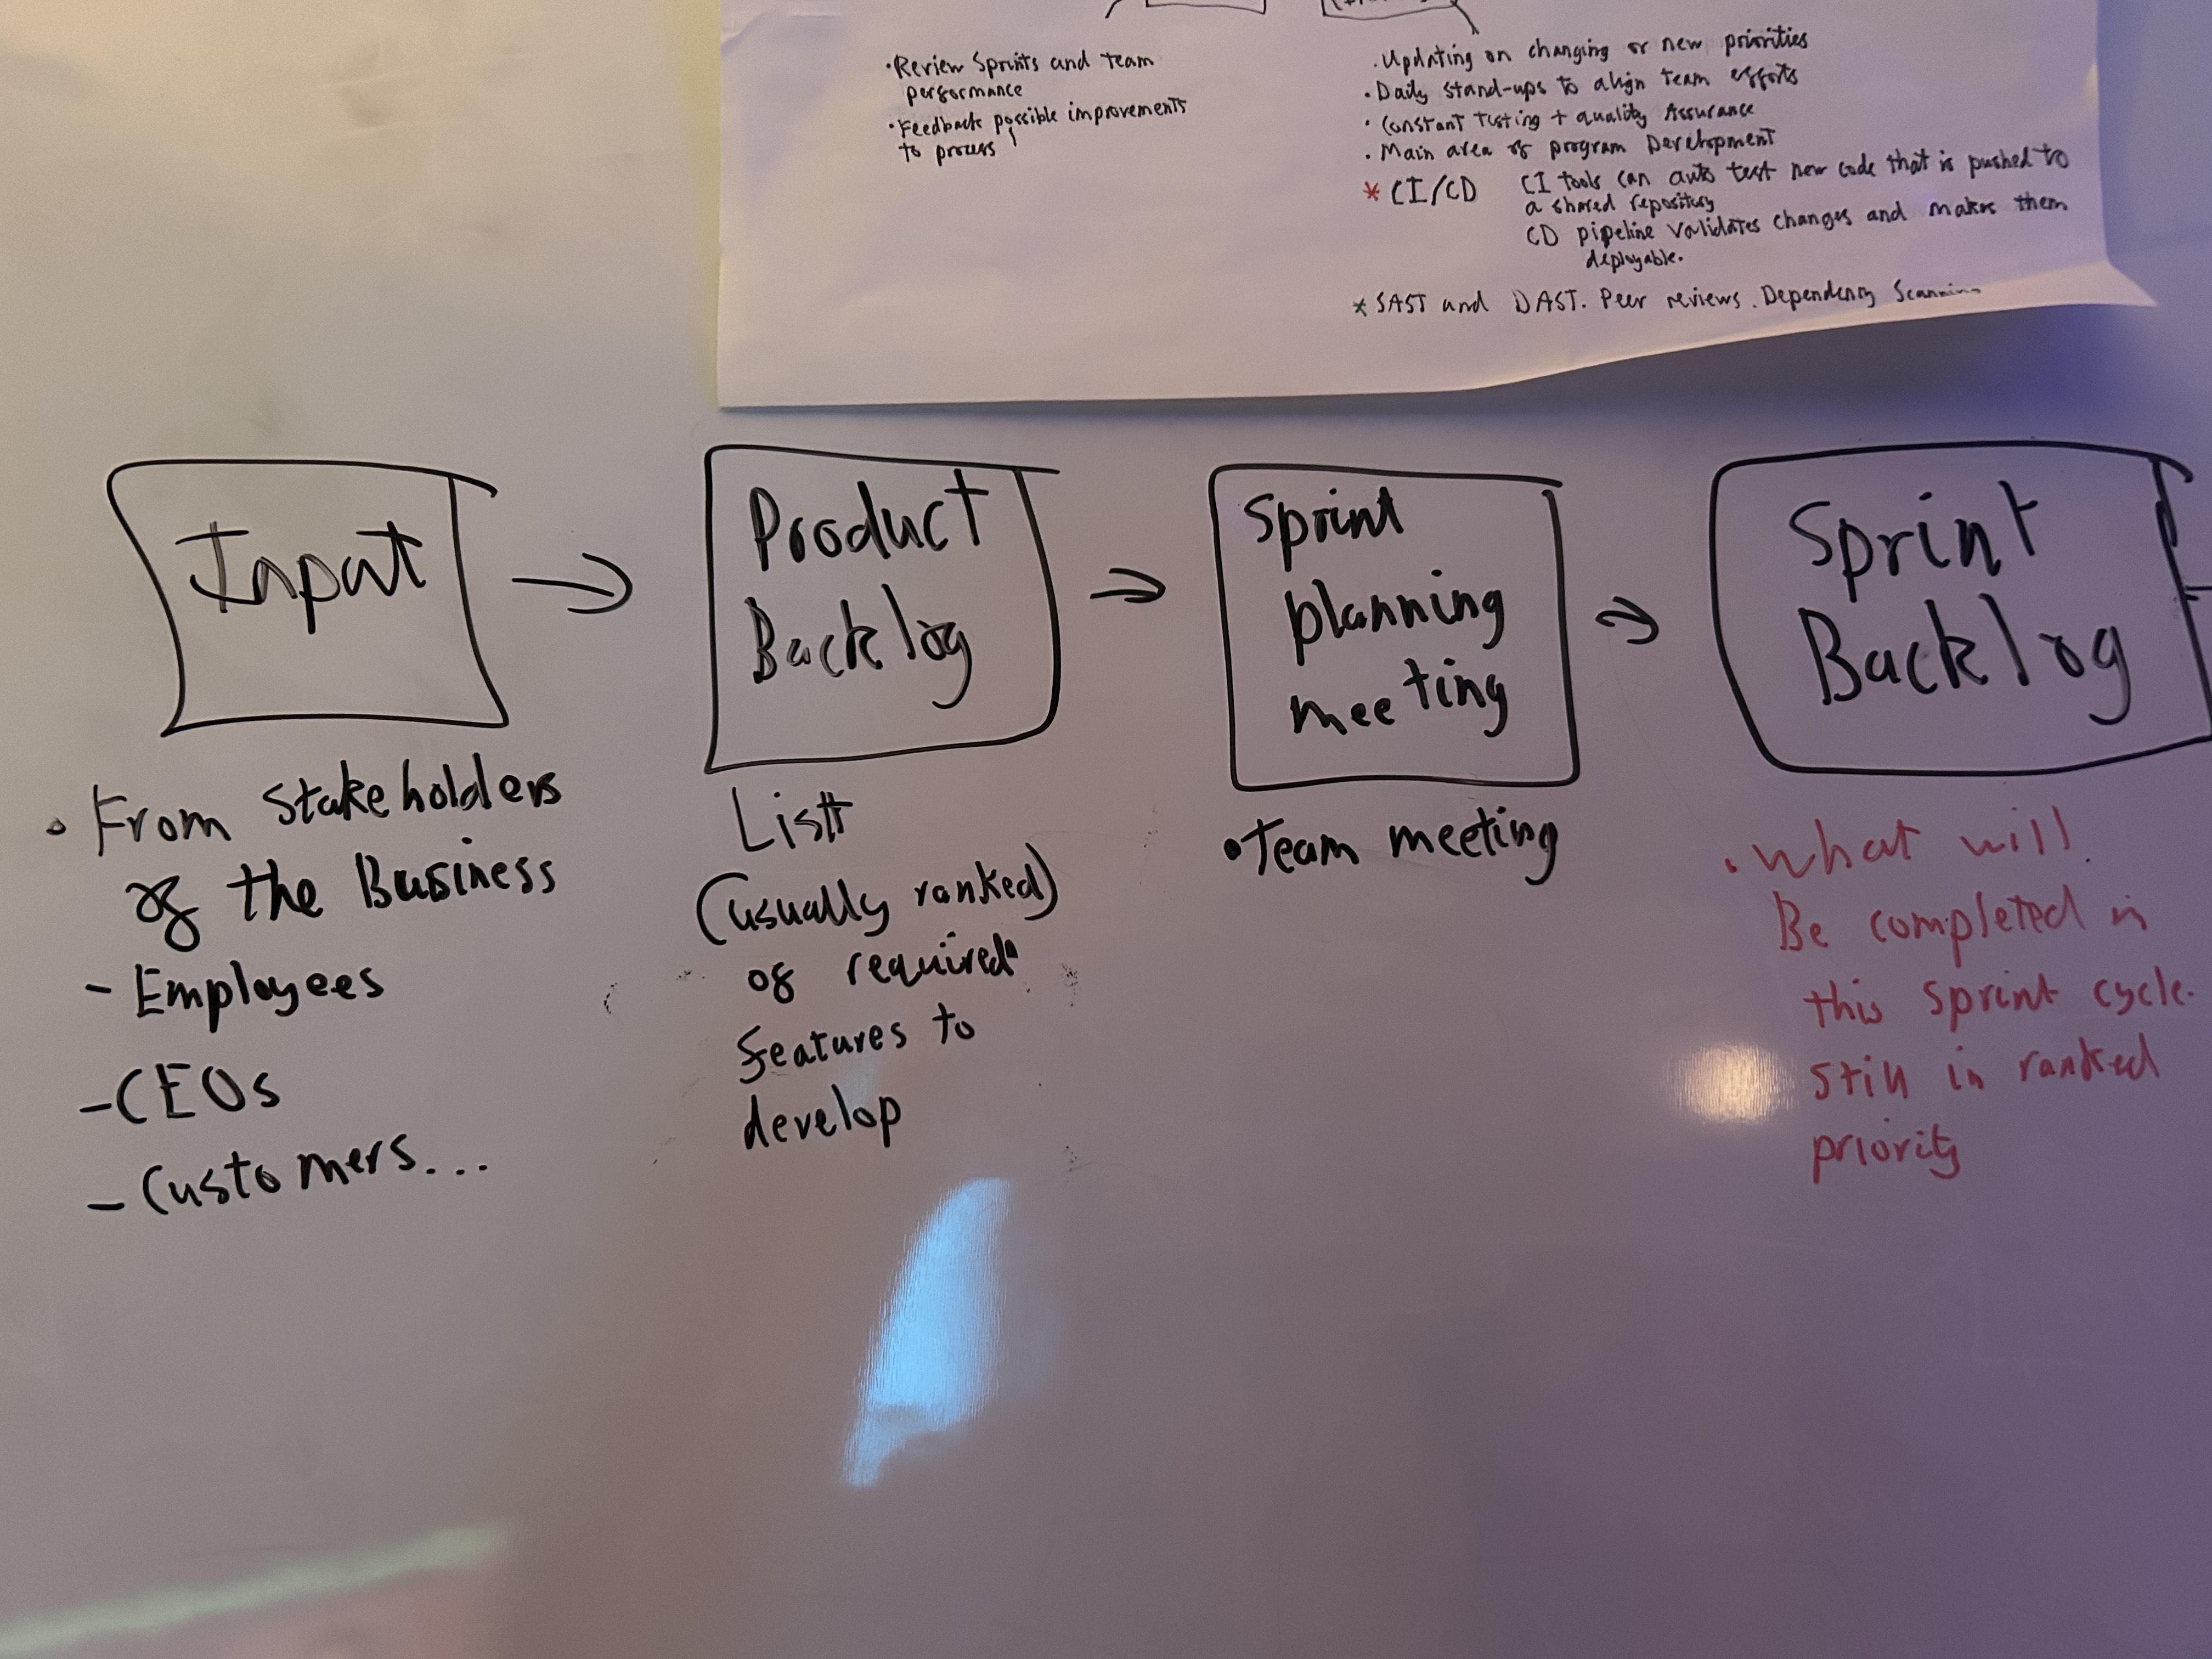 · Review Sprints and team
performance
· Feedback possible improvements
to process
. Updating on changing or new priorities
. Daily stand-ups to align team efforts
· Constant testing + quality Assurance
. Main area of program Development
* CI/CD CI tools can auto test new code that is pushed to
a shared repository
CD pipeline validates changes and makes them
deployable.
* SAST and DAST. Peer reviews. Dependency Scanning
Input
→
Product
Backlog
→
Sprint
planning
meeting
→
Sprint
Backlog
• From Stakeholders
of the Business
- Employees
- CEOs
- Customers...
List
(usually ranked)
of required
features to
develop
• Team meeting
• What will
Be completed in
this sprint cycle.
Still in ranked
priority